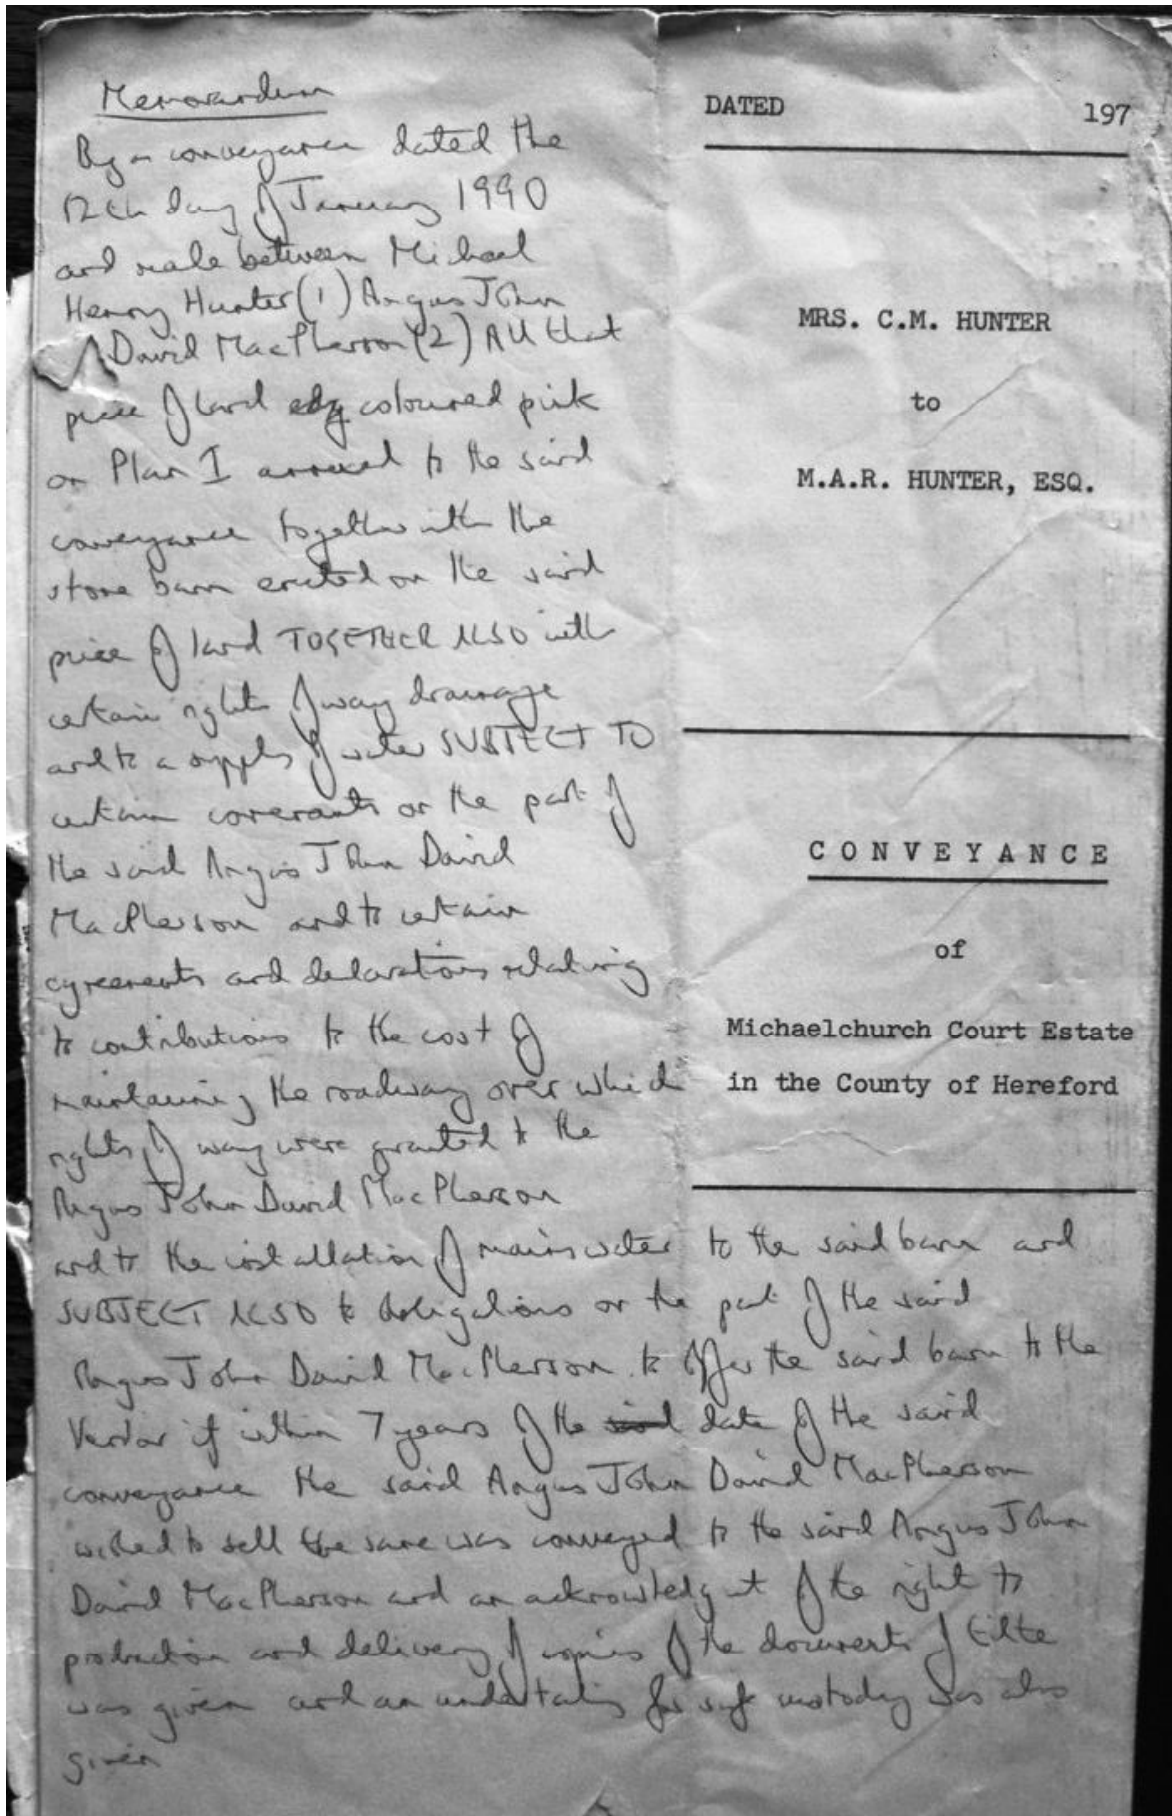 Memorandum
By a conveyance dated the
12th day of January 1990
and made between Michael
Henry Hunter (1) Angus John
David MacPherson (2) All that
piece of land coloured pink
on Plan I annexed to the said
conveyance together with the
stone barn erected on the said
piece of land TOGETHER ALSO with
certain rights of way drainage
and to a supply of water SUBJECT TO
certain covenants on the part of
the said Angus John David
MacPherson and to certain
agreements and declarations relating
to contributions to the cost of
maintaining the roadway over which
rights of way were granted to the
Angus John David MacPherson
and to the installation of mains water to the said barn and
SUBJECT ALSO to obligations on the part of the said
Angus John David MacPherson to offer the said barn to the
Vendor if within 7 years of the said date of the said
conveyance the said Angus John David MacPherson
wished to sell the same was conveyed to the said Angus John
David MacPherson and an acknowledgmt of the right to
production and delivery of copies of the documents of title
was given and an undertaking for safe custody was also
given
DATED 197
MRS. C.M. HUNTER
to
M.A.R. HUNTER, ESQ.
CONVEYANCE
of
Michaelchurch Court Estate
in the County of Hereford